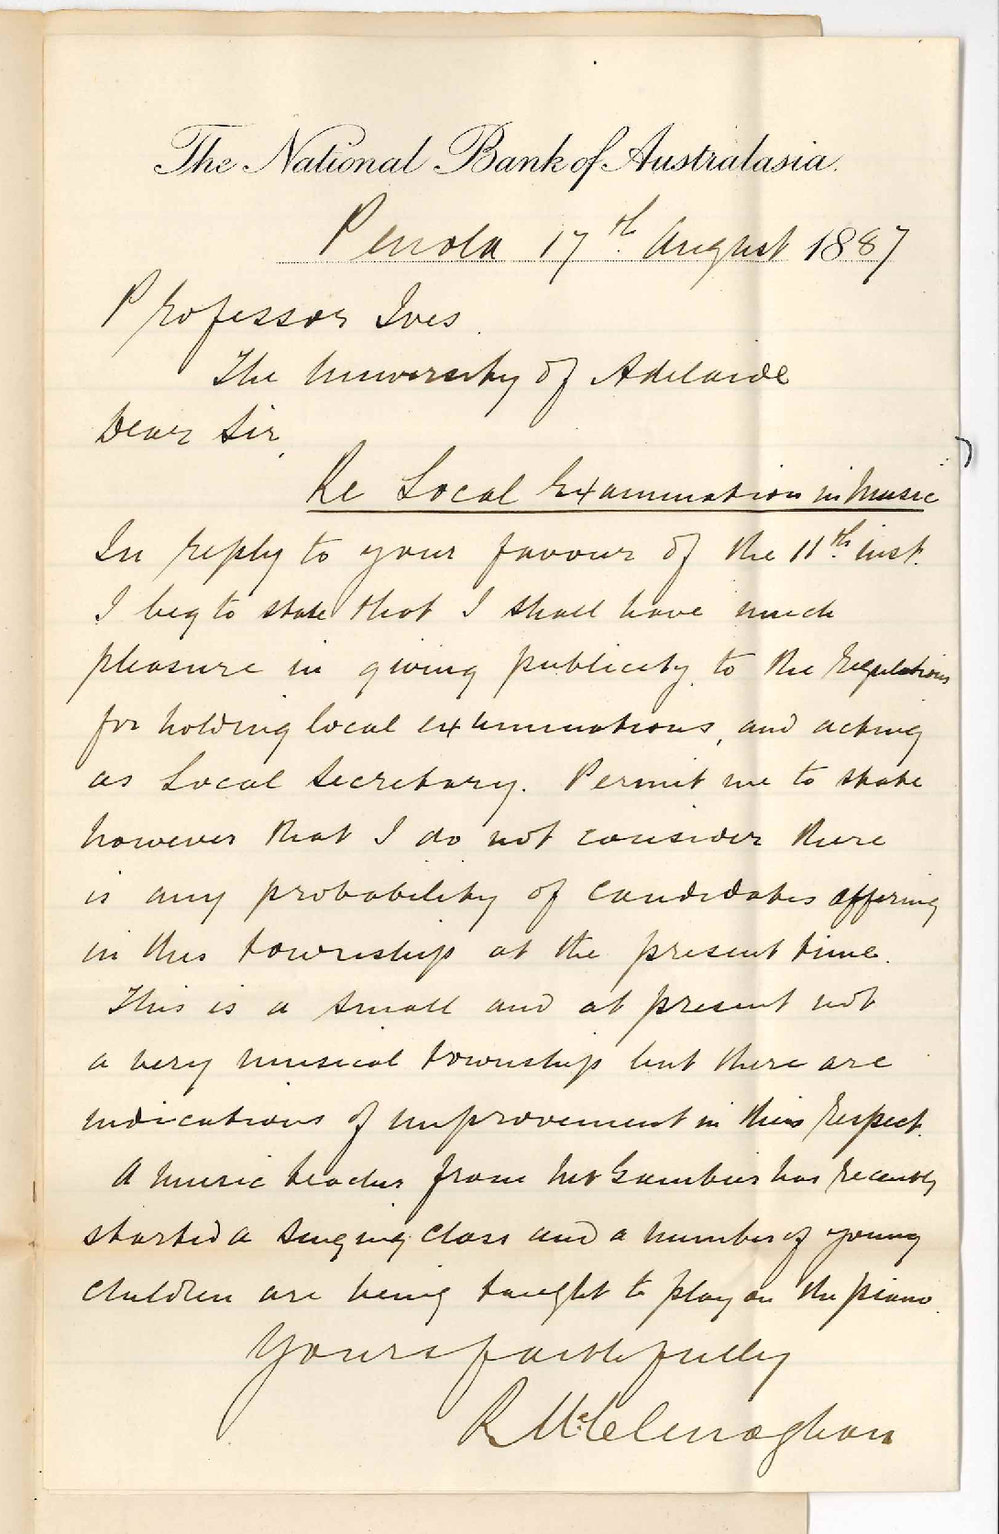 The National Bank of Australasia.
Penola 17th August 1887
Professor Ives.
The University of Adelaide
Dear Sir,
Re Local Examination in Music
In reply to your favour of the 11th inst.
I beg to state that I shall have much
pleasure in giving publicity to the regulations
for holding local examinations, and acting
as Local Secretary. Permit me to state
however that I do not consider there
is any probability of candidates offering
in this township at the present time.
This is a small and at present not
a very musical township but there are
indications of improvement in this respect.
A music teacher from Mt Gambier has recently
started a singing class and a number of young
children are being taught to play on the piano.
Yours faithfully
R McClenaghan